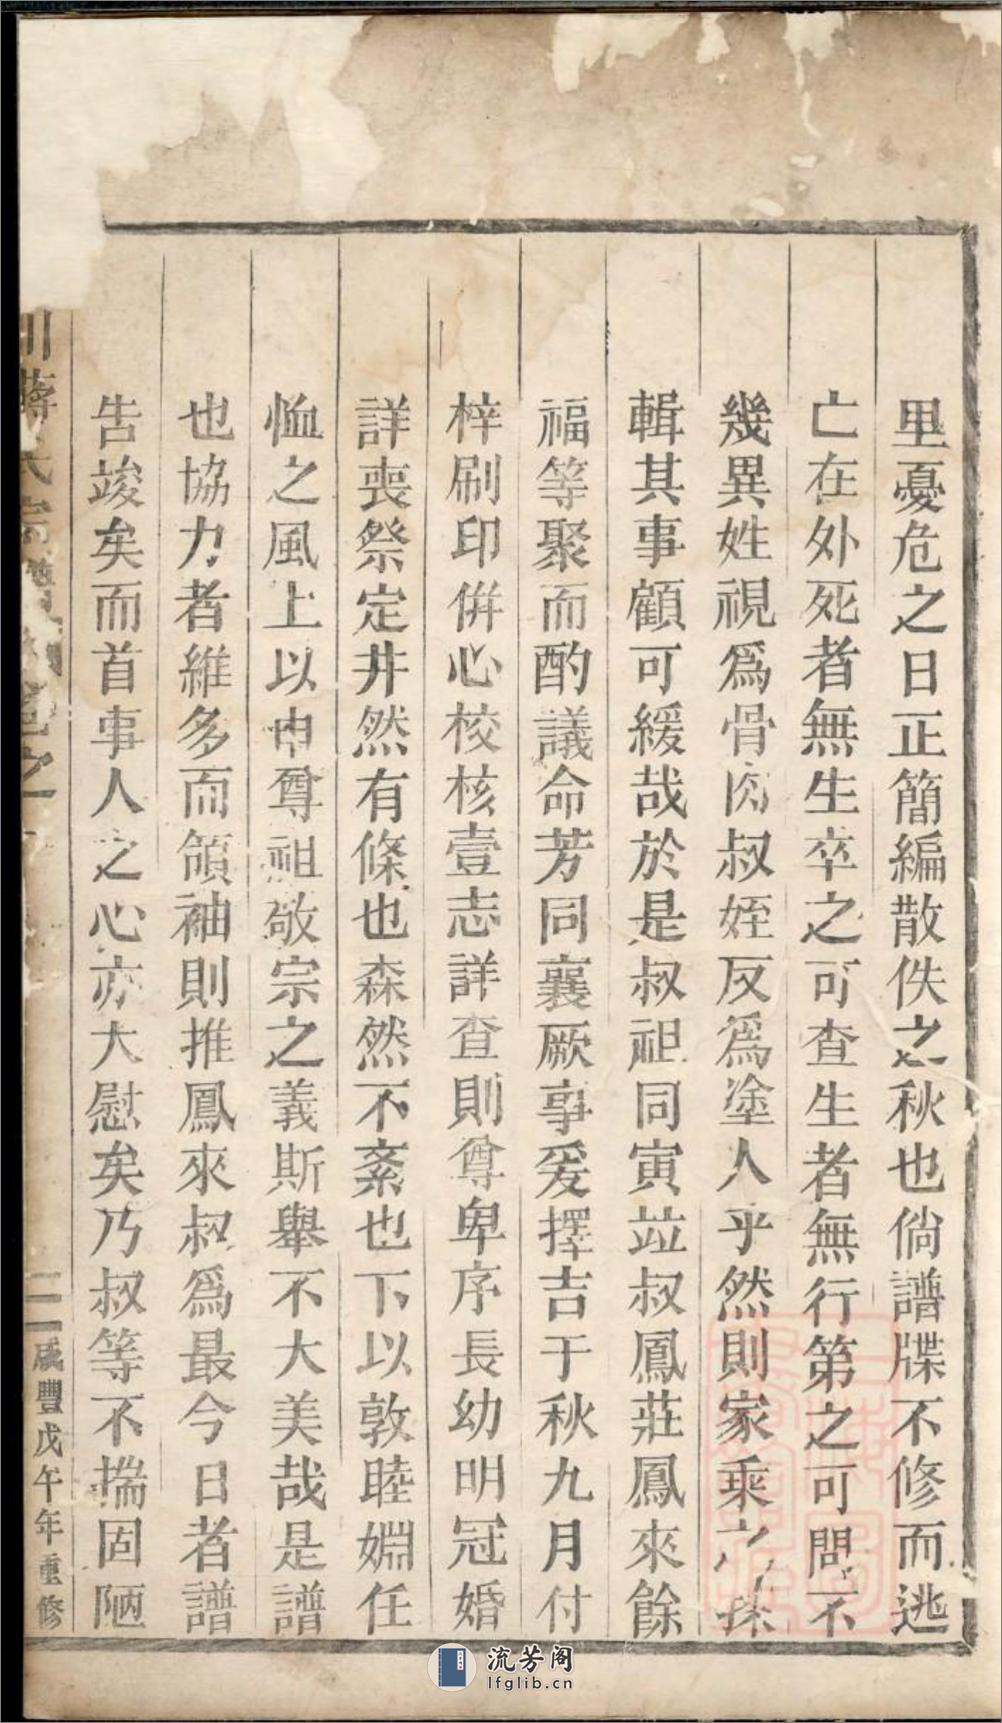 里憂危之日正簡編散佚之秋也倘譜牒不修而逃
亡在外死者無生卒之可查生者無行第之可問不
幾異姓視爲骨肉叔姪反爲塗人乎然則家乘之
輯其事顧可緩哉於是叔祖同寅竝叔鳳莊鳳來餘
福等聚而酌議命芳同襄厥事爰擇吉于秋九月付
梓刷印併心校核壹志詳查則尊卑序長幼明冠婚
詳喪祭定井然有條也森然不紊也下以敦睦婣任
恤之風上以申尊祖敬宗之義斯舉不大美哉是譜
也協力者維多而領袖則推鳳來叔爲最今日者譜
告竣矣而首事人之心亦大慰矣乃叔等不揣固陋
川蔣氏宗譜 卷之一 二 咸豐戊午年重修
流芳阁
lfglib.cn